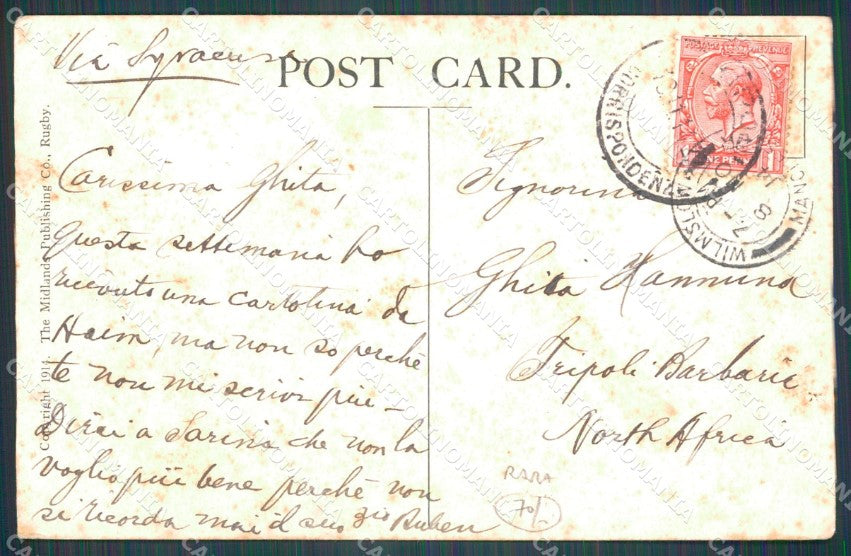 Via Syracusa
POST CARD.
Copyright 1914. The Midlands Publishing Co., Rugby.
Carissima Ghita,
Questa settimana ho
ricevuto una cartolina da
Haim, ma non so perchè
te non mi scrivi più –
Dirai a Sarina che non la
voglio più bene perchè non
si ricorda mai il suo zio Ruben
Signorina
Ghita Hannuna
Tripoli Barbaric
North Africa
RARA
70/
CORRISPONDENZA
WILMSLOW
MAN
8
POSTAGE REVENUE
1
CARTOLINOMANIA